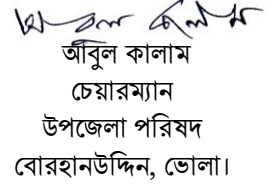 আবুল কালাম
আবুল কালাম
চেয়ারম্যান
উপজেলা পরিষদ
বোরহানউদ্দিন, ভোলা।